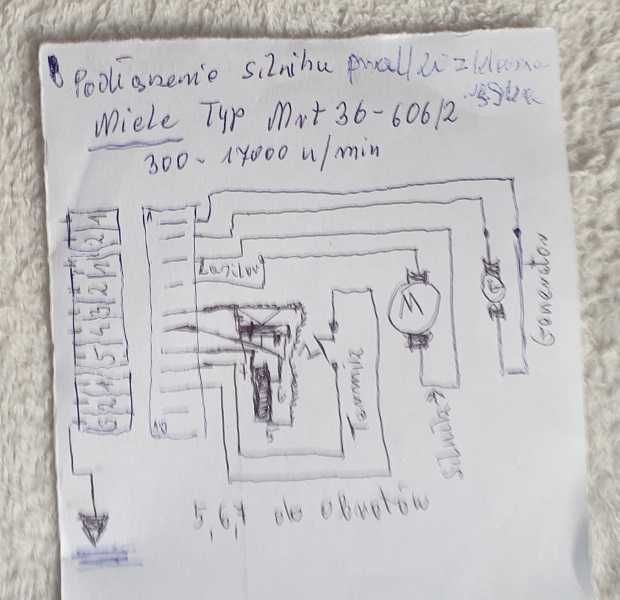 Podłączenie silnika pralki
Miele Typ Mrt 36-606/2
300-17000 u/min
1
2 1
1
2
3
4
5
1
2
G
10
Termik
Silnik
Generator
5,6,7 do obrotów